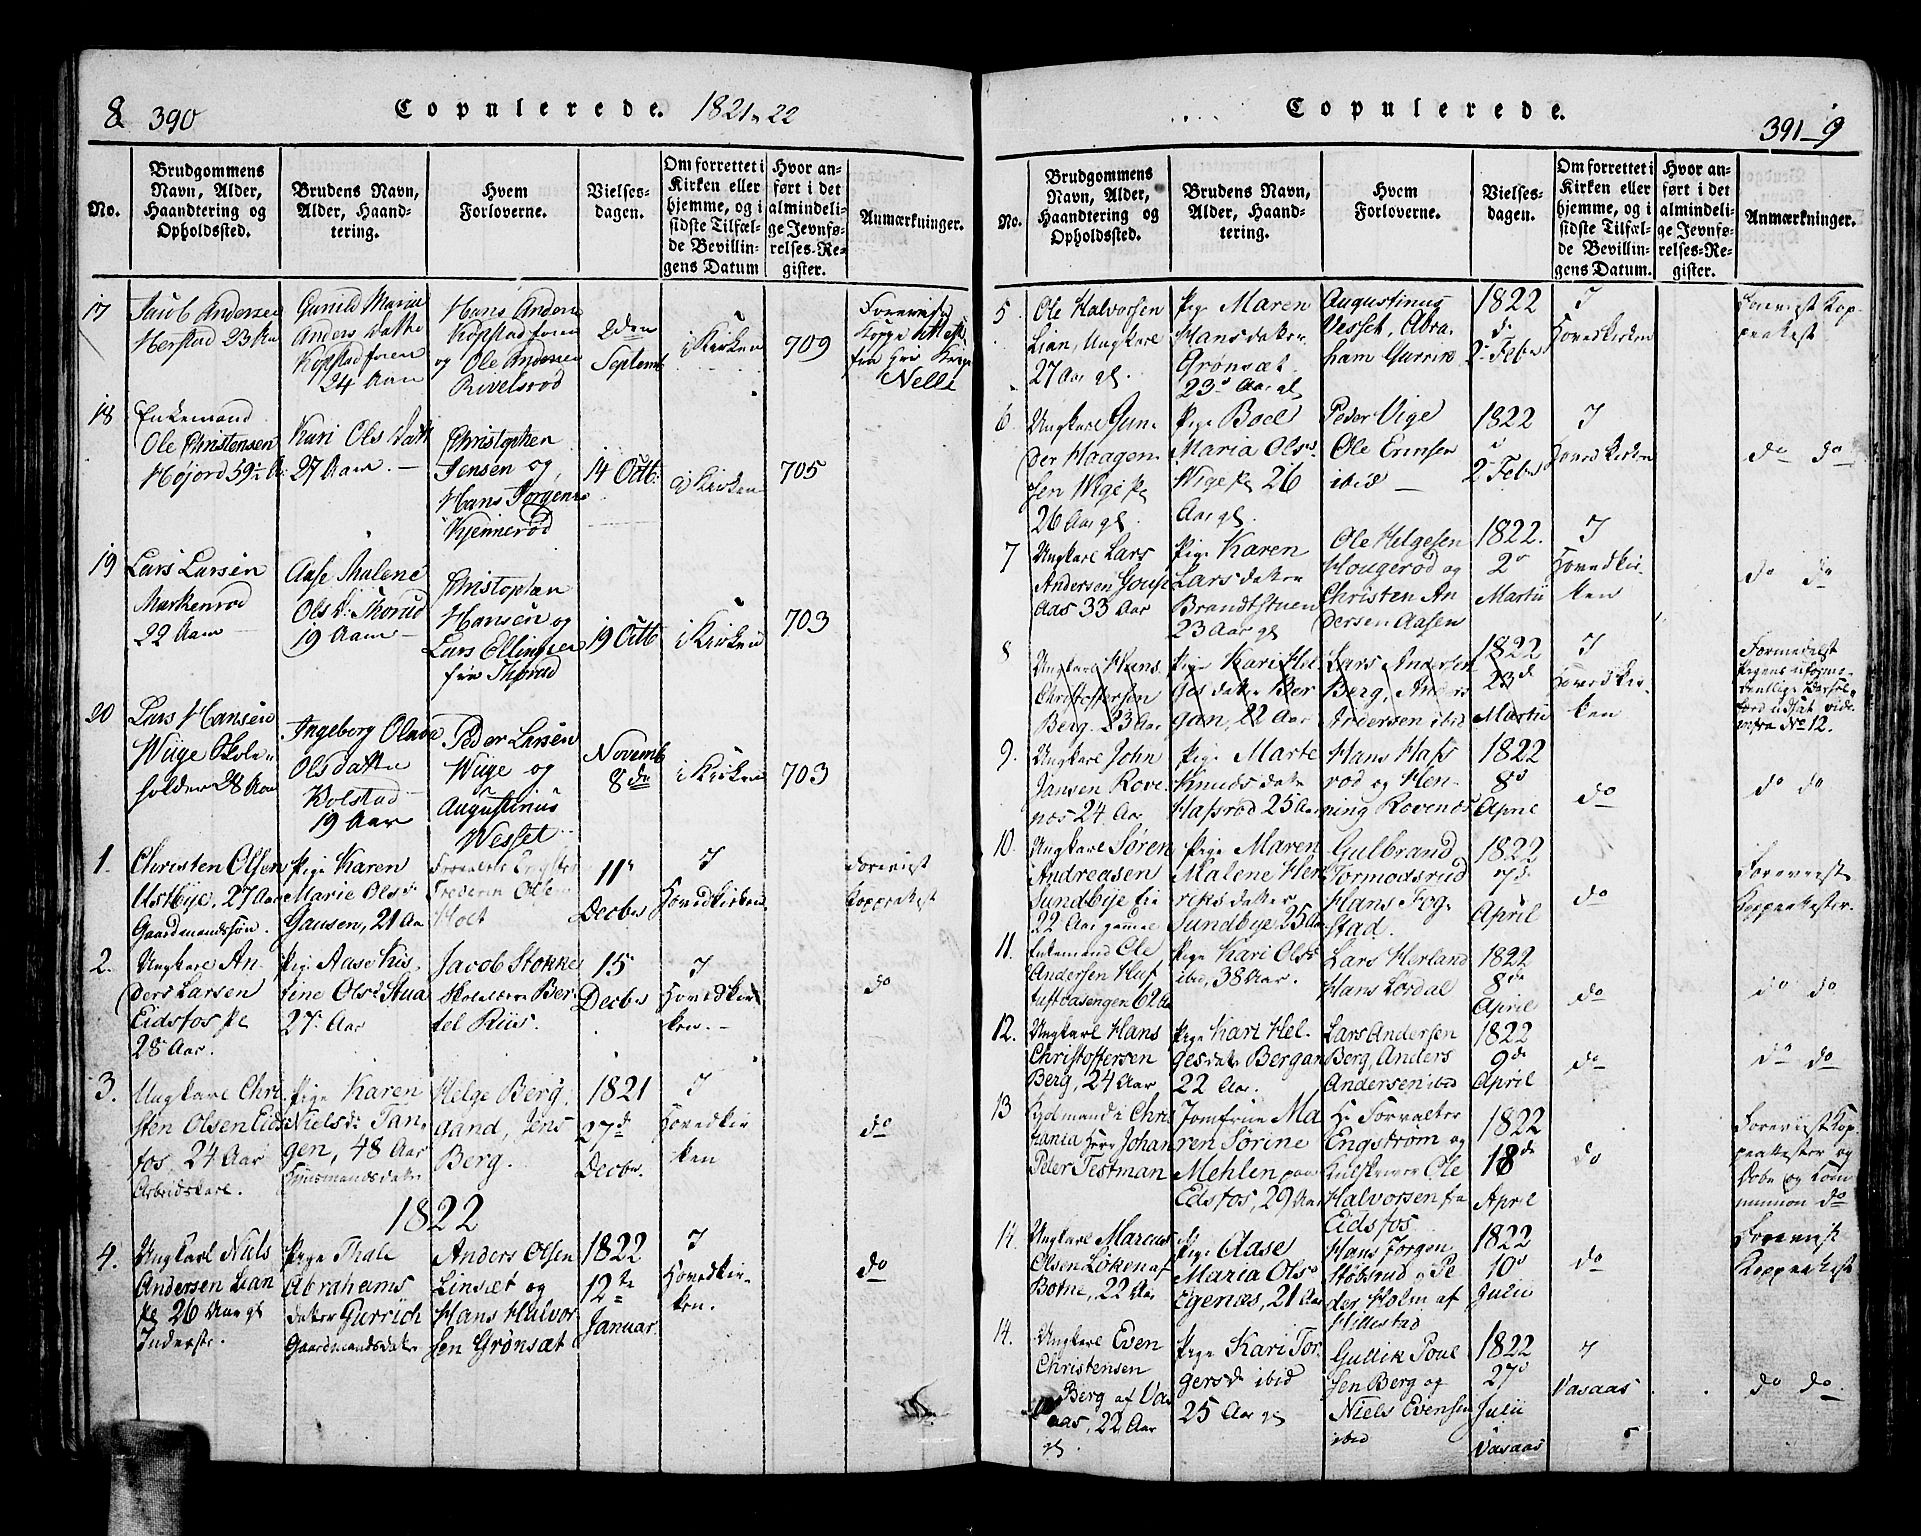 8 390 Copulerede. 1821 22
No.
Brudgommens
Navn, Alder,
Haandtering og
Opholdssted.
Brudens Navn,
Alder, Haand-
tering.
Hvem
Forloverne.
Vielses-
dagen.
Om forrettet i
Kirken eller
hjemme, og i
sidste Tilfæl-
de Bevillin-
gens Datum
Hvor an-
ført i det
almindeli-
ge Jevnfø-
relses-Re-
gister.
Anmærkninger.
17
Jacob Andersen
Herstad 23
Gunild Maria
Anders Datte
Kopstad
24 Aar
Hans Anders
Kopstad
og Ole Andersen
Revelsrød
2den
Septemb
i Kirken
709
Nelli
18
Enkemand
Ole Christensen
Højord 59½
Kari Ols Datt
27 Aar
Christopher
Jensen og
Hans Jørgens
Kjennerød
14 Octb:
i Kirken
705
19
Lars Larsen
Markenrød
22 Aar
Aase Malene
Ols D: Thorud
19 Aar
Christopher
Hansen og
Lars Ellingsen
fra Thorud
19 Octb
i Kirken
703
20
Lars Hansen
Wiige Skole
holder 28 Aar
Ingeborg Olava
Olsdatter
Bolstad
19 Aar
Peder Larsen
Wiige og
Augustinus
Wesset
Novemb
8de
i Kirken
703
1.
Christen Olsen
Ustbye, 27 Aar
Gaardmandssøn.
Pige Karen
Marie Olsd
Gausen, 21 Aar
Frederik Olsen
Holt
11
Decbr
I
Hovedkirken
Foreviist
Koppeattest
2.
Ungkarl An-
ders Larsen
Eidsfos
28 Aar.
Pige Aase Kis
tine Olsd Stua
27 Aar
Jacob Stokke
Skolelærer Ber-
tel Riis.
15
Decbr
I
Hovedkir
ken.
do
3.
Ungkarl Chri
sten Olsen Eids
fos, 24 Aar
Arbeidskarl.
Pige Karen
Nielsd: Tan-
gen, 48 Aar
Huusmandsdatter
Helge Berg
aand, Jens
Berg.
1821
27d
Decbr.
I
Hovedkir
ken
do
1822
4.
Ungkarl Niels
Andersen Lian
26 Aar gl
Inderste.
Pige Thale
Abrahams
datter Gurrich
Gaardmandsdatter
Anders Olsen
Linsæt og
Hans Halvor
sen Grønsæt
1822
12te
Januar
I
Hovedkir-
ken.
do
Copulerede. 391 9
No.
Brudgommens
Navn, Alder,
Haandtering og
Opholdssted.
Brudens Navn,
Alder, Haand-
tering.
Hvem
Forloverne.
Vielses-
dagen.
Om forrettet i
Kirken eller
hjemme, og i
sidste Tilfæl-
de Bevillin-
gens Datum.
Hvor an-
ført i det
almindeli-
ge Jevnfø-
relses-Re-
gister.
Anmærkninger.
5
Ole Halvorsen
Lian, Ungkarl
27 Aar gl.
Pige Maren
Hansdatter
Grønsæt
23 Aar gl
Augustinus
Vesset, Abra
ham Gurrik
1822
d
2 Febr
I
Hovedkirken
Foreviist Kop-
peattest
6
Ungkarl Gun-
der Haagen-
sen Wige
26 Aar gl
Pige Boel
Maria Olsd
Wige 26
Aar gl.
Peder Vige
Ole Erinsen
ibid
1822
2 Febr
I
Hovedkirken
do do
7
Ungkarl Lars
Andersen
aas 33 Aar
Pige Karen
Larsdatter
Brandtstuen
23 Aar gl
Ole Helgesen
Hougerød og
Christen An
dersen Aasen
1822.
2
Martii
I
Hovedkir-
ken
do do
8
Ungkarl Hans
Christoffersen
Berg. 23 Aar
Pige Kari Hel
gesdatter Ber
gan, 22 Aar
Lars Andersen
Berg, Anders
Andersen ibid
1822
23d
Martii
I
Hovedkir-
ken
Formedelst
Pigens
udsat vide
infra No 12.
9.
Ungkarl John
Jansen Rove
næs 24 Aar
Pige Marte
Knudsdatter
Hafsrød 25 Aar
Hans Hafs
rød og Hen-
ning Rovenæs
1822
8d
April
do
do do
10.
Ungkarl Søren
Andreasen
Sundbye
22 Aar gamel
Pige Maren
Malene Hen
riksdatter
Sundbye 25 Aar
Gulbrand
Tormodsrud
Hans Fog-
stad.
1822
7d
April
do
Foreviist
Koppeattester.
11.
Enkemand Ole
Andersen Huf
62 Aar
Pige Kari Olsd
ibid, 38 Aar.
Lars Herland
Hans Lørdal
1822
8de
April
do
do do
12.
Ungkarl Hans
Christoffersen
Berg, 24 Aar
Pige Kari Hel-
gesdatr Bergan
22 Aar.
Lars Andersen
Berg, Anders
Andersen ibid
1822
9de
April
do
do do
13
i Chris
tiania Herr Johan
Peter Testman
Jomfrue Ma
ren Sørine
Mehlen paa
Edsfos, 29 Aar
Hr Forvalter
Engstrøm og
Ole
Halvorsen fra
Eidsfos
1822
18de
April
do
Foreviist Kop
peattester og
Døbe og Com
munion do
14.
Ungkarl Marcus
Olsen Løken af
Botne, 22 Aar
Pige Aase
Maria Olsd
Egenæs, 21 Aar
Hans Jørgen
Støbsrud og Pe
der Holm af
Hillestad
1822
10d
Julii
do
Foreviist
Koppeattest
14.
Ungkarl Even
Christensen
Berg af Vas
aas, 22 Aar
gl.
Pige Kari Tor-
gersd ibid
25 Aar gl
Gullik Poul
sen Berg og
Niels Evensen
ibid
1822
27d
Julii
Vasaas
I
Vasaas
do do